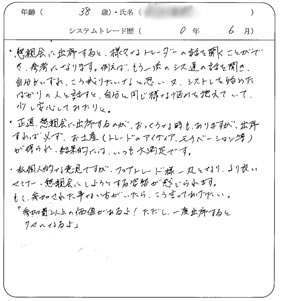 年齢（ 38 歳）・氏名（
システムトレード歴（ 0 年 6 月）
・懇親会に出席すると、様々なトレーダーの話を聞くことがで
き、参考になります。例えば、もう一歩のシス達の話を聞き、
自分もいずれ、こうありたいなぁと思い、又、シストレを始めた
ばかりの人と話すと、自分と同じ様な悩みを抱えていて、
少し安心してみたりと。
・正直、懇親会に出席するのが、おっくうな時も、ありますが、出席
すれば必ず、お土産（トレードのアイディア、モチベーション等）
が得られ、結果的には、いつも大満足です。
・私個人的な意見ですが、フェアトレード様一丸となり、より良い
セミナー、懇親会にしようとする姿勢が感じられます。
もし、参加された事がない方がいたら、こう言ってあげたい。
「参加費以上の価値があるよ！ただし、一度出席すると
クセになるよ」